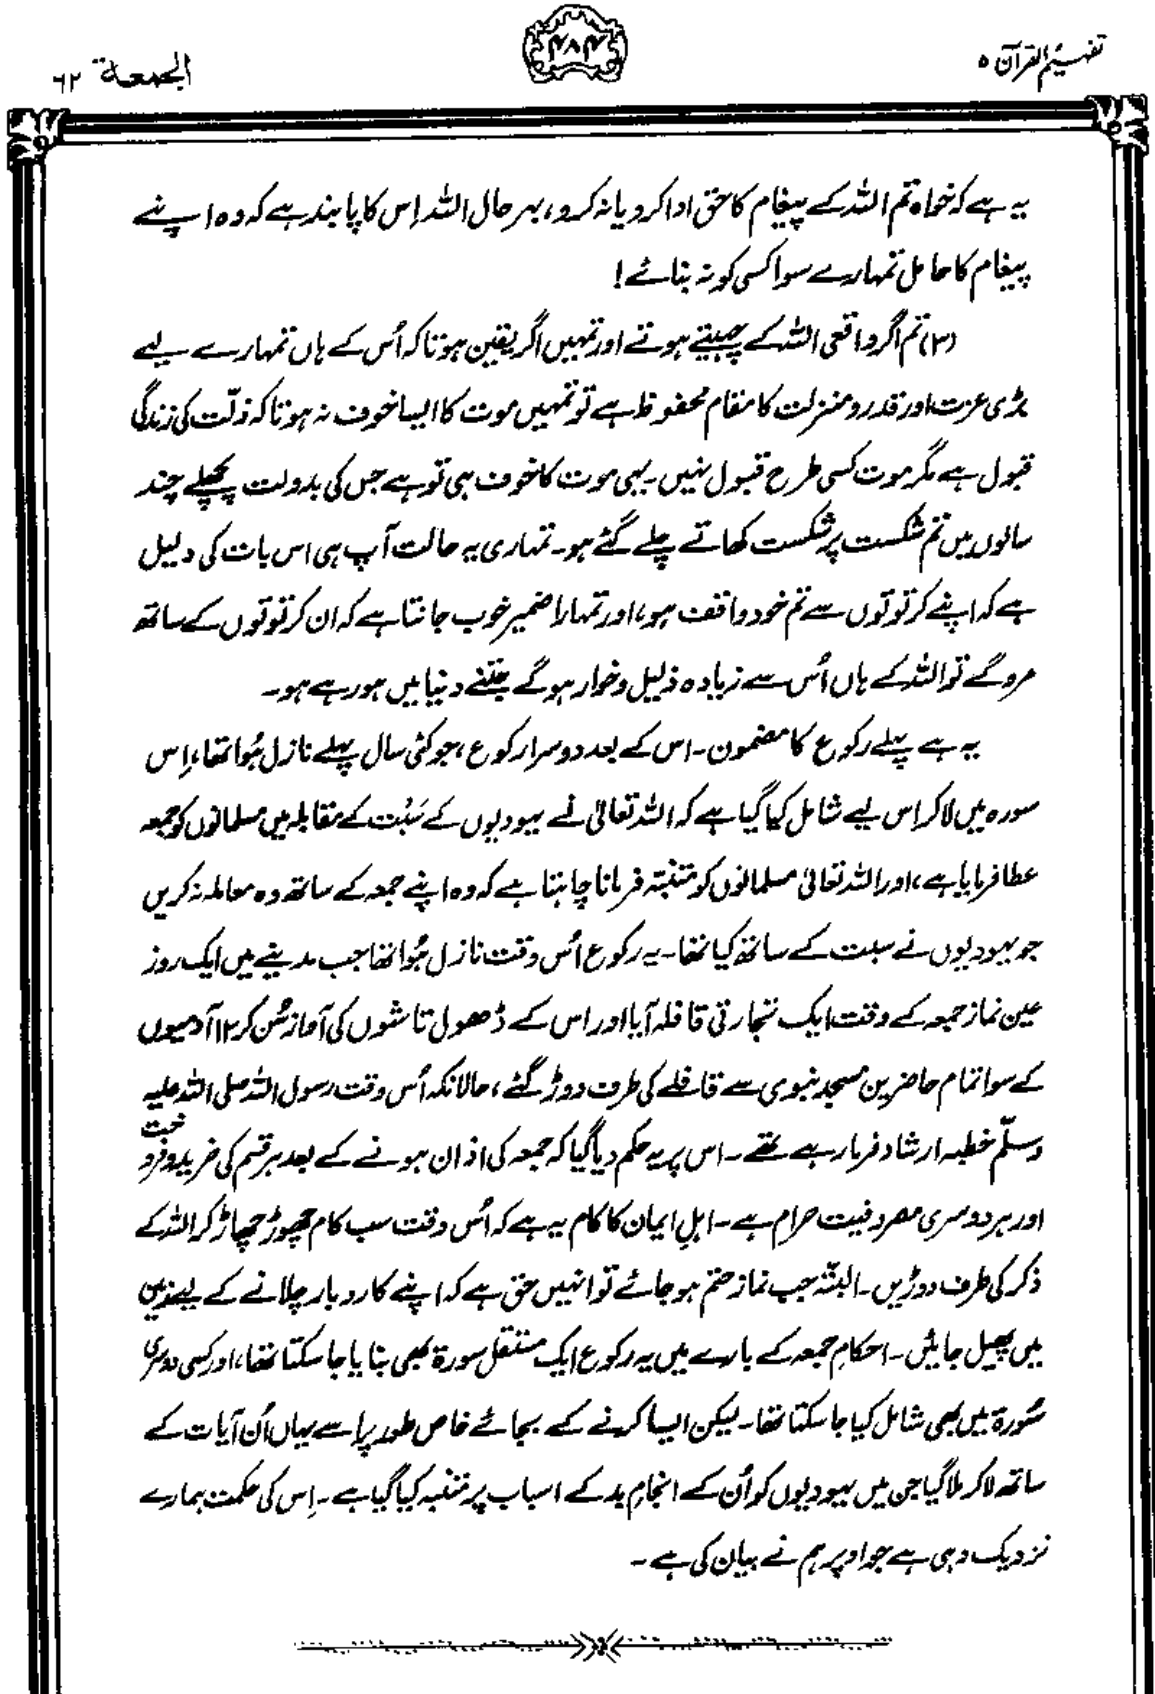 تفہیم القرآن ۵
۴۸۴
الجمعة ۶۲
یہ ہے کہ خواہ تم اللہ کے پیغام کا حق ادا کرو یا نہ کرو، بہر حال اللہ اِس کا پابند ہے کہ وہ اپنے
پیغام کا حامل تمہارے سوا کسی کو نہ بنائے!
(۳) تم اگر واقعی اللہ کے چہیتے ہوتے اور تمہیں اگر یقین ہوتا کہ اُس کے ہاں تمہارے لیے
بڑی عزت اور قدر و منزلت کا مقام محفوظ ہے تو تمہیں موت کا ایسا خوف نہ ہوتا کہ ذلّت کی زندگی
قبول ہے مگر موت کسی طرح قبول نہیں۔ یہی موت کا خوف ہی تو ہے جس کی بدولت پچھلے چند
سالوں میں تم شکست پر شکست کھاتے چلے گئے ہو۔ تمہاری یہ حالت آپ ہی اس بات کی دلیل
ہے کہ اپنے کرتوتوں سے تم خود واقف ہو، اور تمہارا ضمیر خوب جانتا ہے کہ ان کرتوتوں کے ساتھ
مرو گے تو اللہ کے ہاں اُس سے زیادہ ذلیل و خوار ہو گے جتنے دنیا میں ہو رہے ہو۔
یہ ہے پہلے رکوع کا مضمون۔ اس کے بعد دوسرا رکوع، جو کئی سال پہلے نازل ہُوا تھا، اِس
سورہ میں لا کر اس لیے شامل کیا گیا ہے کہ اللہ تعالیٰ نے یہودیوں کے سَبْت کے مقابلہ میں مسلمانوں کو جمعہ
عطا فرمایا ہے، اور اللہ تعالیٰ مسلمانوں کو متنبّہ فرمانا چاہتا ہے کہ وہ اپنے جمعہ کے ساتھ وہ معاملہ نہ کریں
جو یہودیوں نے سبت کے ساتھ کیا تھا۔ یہ رکوع اُس وقت نازل ہُوا تھا جب مدینے میں ایک روز
عین نماز جمعہ کے وقت ایک تجارتی قافلہ آیا اور اس کے ڈھول تاشوں کی آواز سُن کر ۱۲ آدمیوں
کے سوا تمام حاضرین مسجد نبوی سے قافلے کی طرف دوڑ گئے، حالانکہ اُس وقت رسول اللہ صلی اللہ علیہ
وسلّم خطبہ ارشاد فرما رہے تھے۔ اس پر یہ حکم دیا گیا کہ جمعہ کی اذان ہونے کے بعد ہر قسم کی خرید و فروخت
اور ہر دوسری مصروفیت حرام ہے۔ اہلِ ایمان کا کام یہ ہے کہ اُس وقت سب کام چھوڑ چھاڑ کر اللہ کے
ذکر کی طرف دوڑیں۔ البتّہ جب نماز ختم ہو جائے تو انہیں حق ہے کہ اپنے کاروبار چلانے کے لیے زمین
میں پھیل جائیں۔ احکامِ جمعہ کے بارے میں یہ رکوع ایک مستقل سورة بھی بنایا جا سکتا تھا، اور کسی دوسری
سُورة میں بھی شامل کیا جا سکتا تھا۔ لیکن ایسا کرنے کے بجائے خاص طور پر اسے یہاں اُن آیات کے
ساتھ لا کر ملا گیا جن میں یہودیوں کو اُن کے انجامِ بد کے اسباب پر متنبہ کیا گیا ہے۔ اِس کی حکمت ہمارے
نزدیک وہی ہے جو اوپر ہم نے بیان کی ہے۔